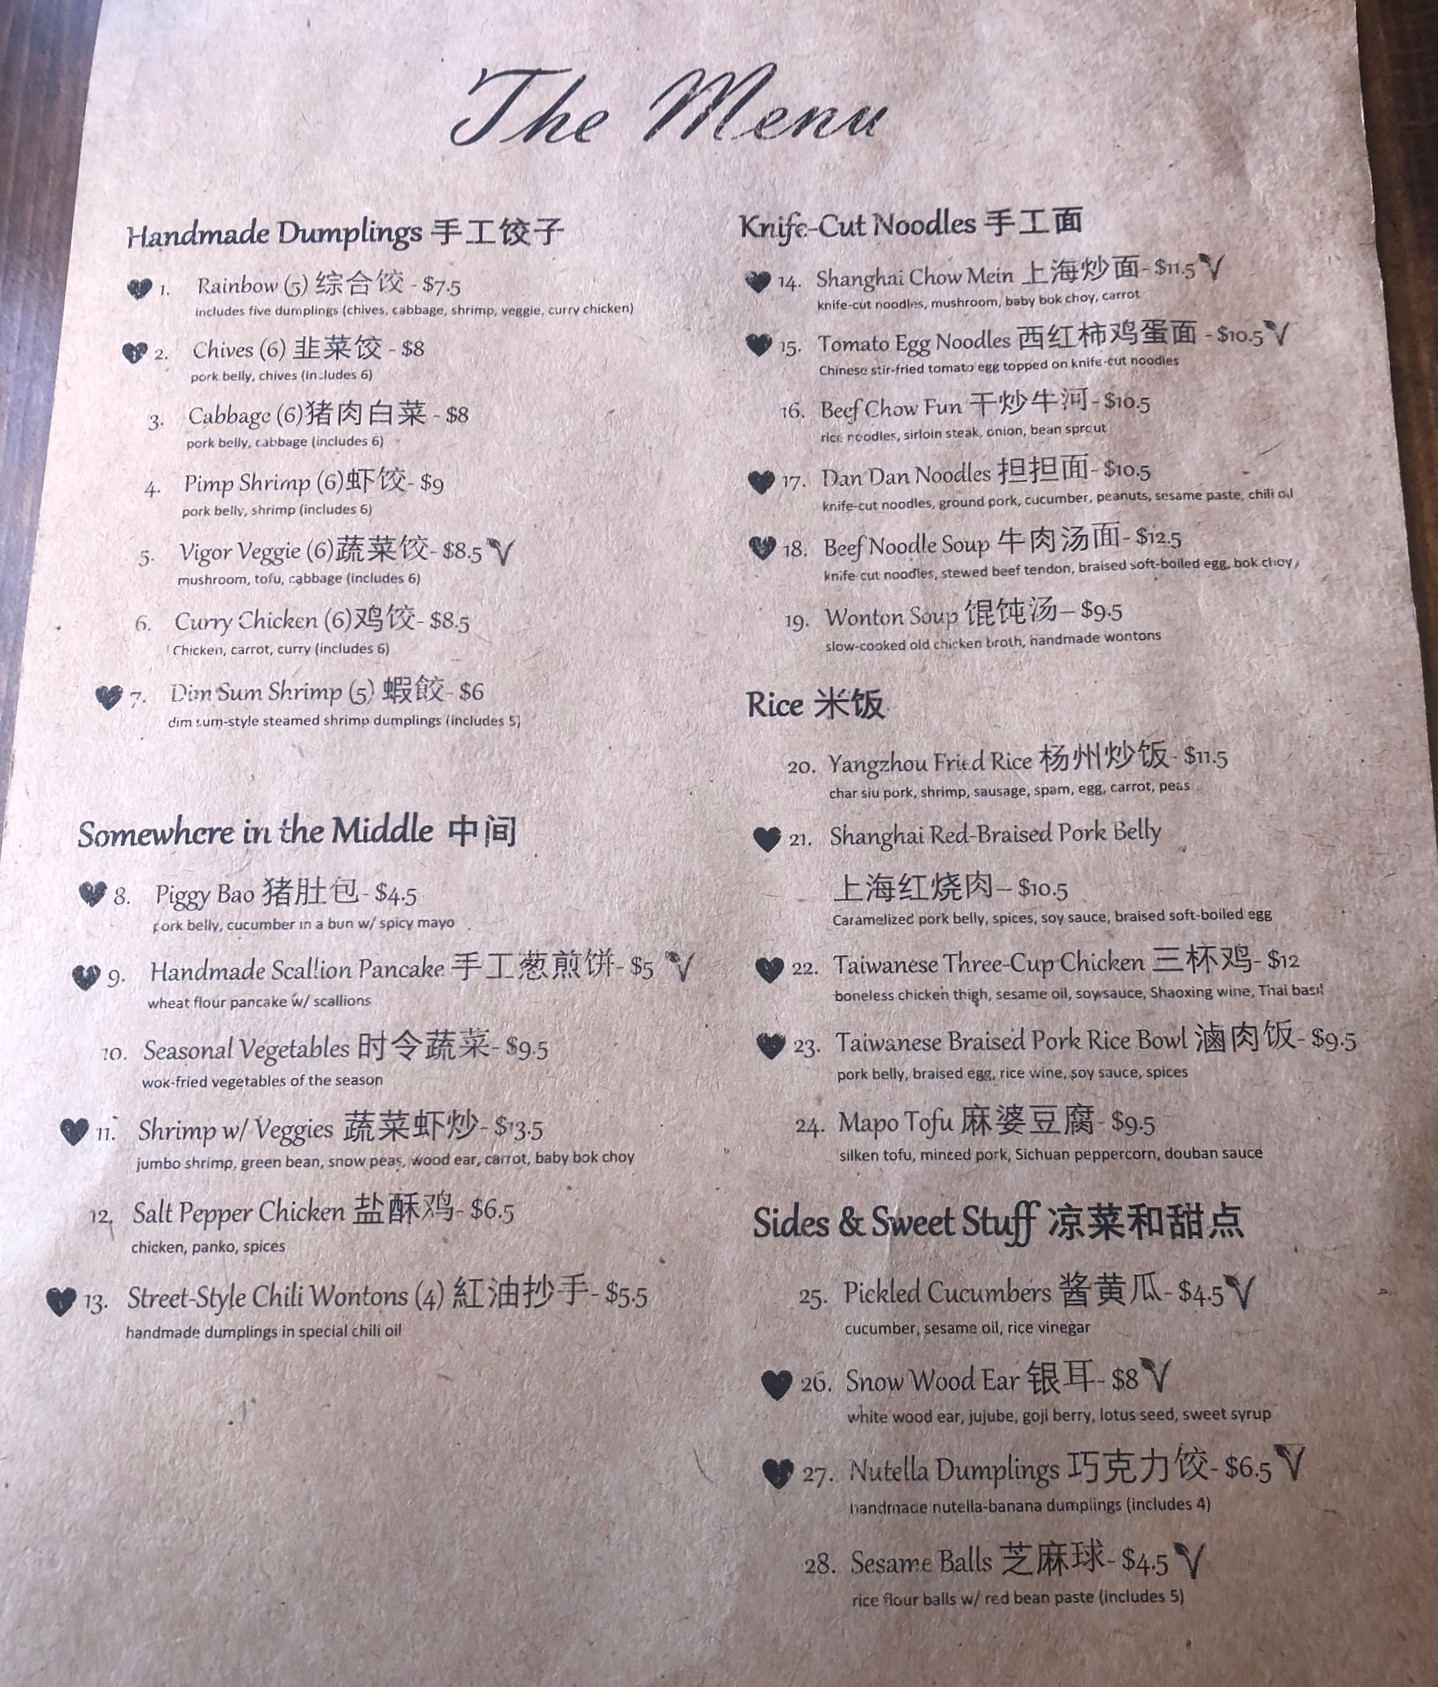 The Menu
Handmade Dumplings 手工饺子
1. Rainbow (5) 综合饺 - $7.5
includes five dumplings (chives, cabbage, shrimp, veggie, curry chicken)
2. Chives (6) 韭菜饺 - $8
pork belly, chives (includes 6)
3. Cabbage (6)猪肉白菜 - $8
pork belly, cabbage (includes 6)
4. Pimp Shrimp (6)虾饺- $9
pork belly, shrimp (includes 6)
5. Vigor Veggie (6)蔬菜饺- $8.5 V
mushroom, tofu, cabbage (includes 6)
6. Curry Chicken (6)鸡饺- $8.5
Chicken, carrot, curry (includes 6)
7. Dim Sum Shrimp (5) 蝦餃- $6
dim sum-style steamed shrimp dumplings (includes 5)
Somewhere in the Middle 中间
8. Piggy Bao 猪肚包- $4.5
pork belly, cucumber in a bun w/ spicy mayo
9. Handmade Scallion Pancake 手工葱煎饼- $5 V
wheat flour pancake w/ scallions
10. Seasonal Vegetables 时令蔬菜- $9.5
wok-fried vegetables of the season
11. Shrimp w/ Veggies 蔬菜虾炒- $13.5
jumbo shrimp, green bean, snow peas, wood ear, carrot, baby bok choy
12. Salt Pepper Chicken 盐酥鸡- $6.5
chicken, panko, spices
13. Street-Style Chili Wontons (4) 紅油抄手- $5.5
handmade dumplings in special chili oil
Knife-Cut Noodles 手工面
14. Shanghai Chow Mein 上海炒面- $11.5 V
knife-cut noodles, mushroom, baby bok choy, carrot
15. Tomato Egg Noodles 西红柿鸡蛋面 - $10.5 V
Chinese stir-fried tomato egg topped on knife-cut noodles
16. Beef Chow Fun 干炒牛河- $10.5
rice noodles, sirloin steak, onion, bean sprout
17. Dan Dan Noodles 担担面- $10.5
knife-cut noodles, ground pork, cucumber, peanuts, sesame paste, chili oil
18. Beef Noodle Soup 牛肉汤面- $12.5
knife-cut noodles, stewed beef tendon, braised soft-boiled egg, bok choy,
19. Wonton Soup 馄饨汤– $9.5
slow-cooked old chicken broth, handmade wontons
Rice 米饭
20. Yangzhou Fried Rice 杨州炒饭- $11.5
char siu pork, shrimp, sausage, spam, egg, carrot, peas
21. Shanghai Red-Braised Pork Belly
上海红烧肉– $10.5
Caramelized pork belly, spices, soy sauce, braised soft-boiled egg
22. Taiwanese Three-Cup Chicken 三杯鸡- $12
boneless chicken thigh, sesame oil, soy sauce, Shaoxing wine, Thai basil
23. Taiwanese Braised Pork Rice Bowl 滷肉饭- $9.5
pork belly, braised egg, rice wine, soy sauce, spices
24. Mapo Tofu 麻婆豆腐- $9.5
silken tofu, minced pork, Sichuan peppercorn, douban sauce
Sides & Sweet Stuff 凉菜和甜点
25. Pickled Cucumbers 酱黄瓜- $4.5 V
cucumber, sesame oil, rice vinegar
26. Snow Wood Ear 银耳- $8 V
white wood ear, jujube, goji berry, lotus seed, sweet syrup
27. Nutella Dumplings 巧克力饺- $6.5 V
handmade nutella-banana dumplings (includes 4)
28. Sesame Balls 芝麻球- $4.5 V
rice flour balls w/ red bean paste (includes 5)